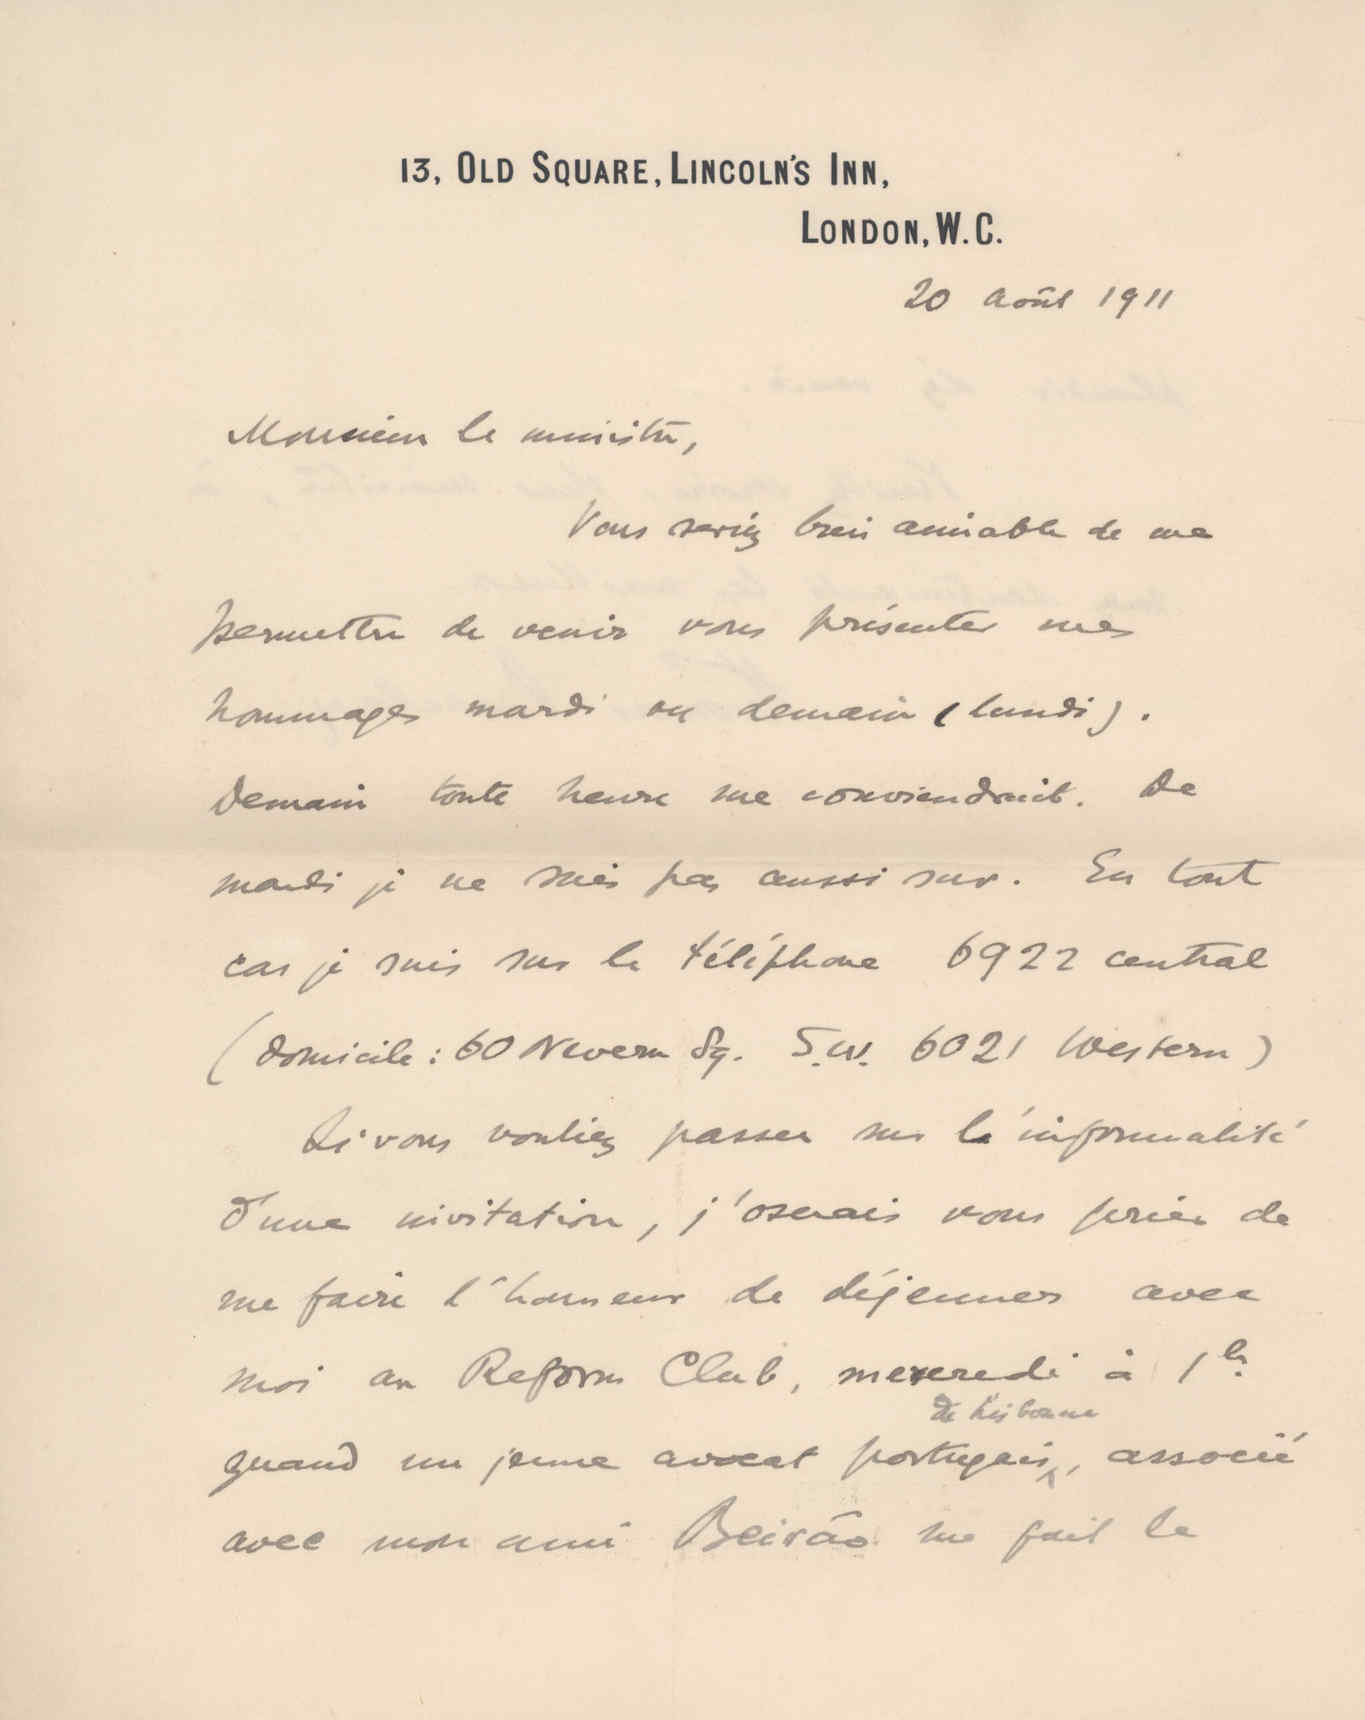 13, OLD SQUARE, LINCOLN'S INN,
LONDON, W.C.
20 août 1911
Monsieur le ministre,
Vous seriez bien aimable de me
permettre de venir vous présenter mes
hommages mardi ou demain (lundi).
Demain toute heure me conviendrait. De
mardi je ne suis pas aussi sur. En tout
cas je suis sur le téléphone 6922 central
(domicile : 60 Nevern Sq. S.W. 6021 Western)
Si vous vouliez passer sur l'informalité
d'une invitation, j'oserais vous prier de
me faire l'honneur de déjeuner avec
moi au Reform Club, mercredi à 1 h.
de Lisbonne
quand un jeune avocat portugais, associé
avec mon ami Beirão me fait le